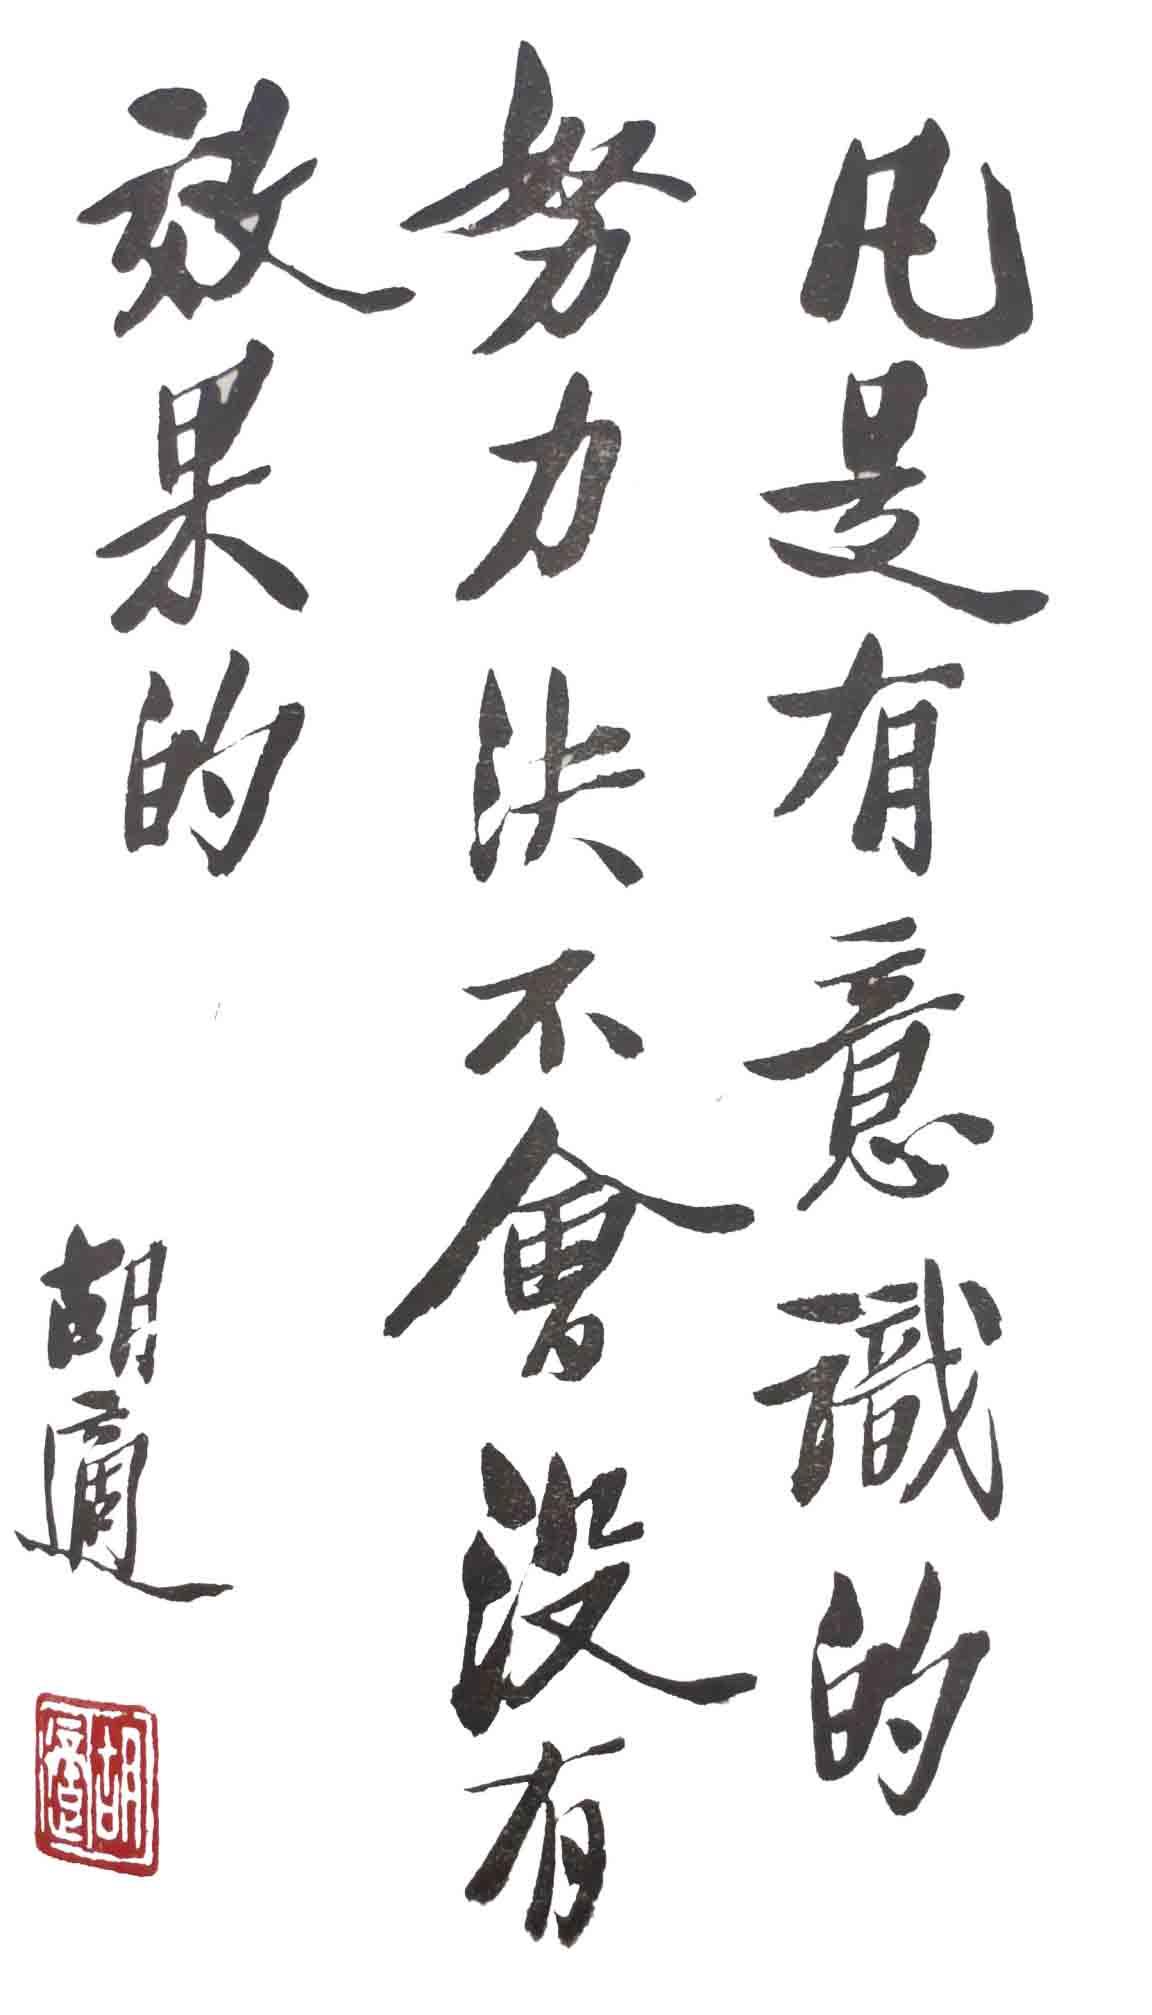 凡是有意識的
努力決不會沒有
效果的
胡適
胡適